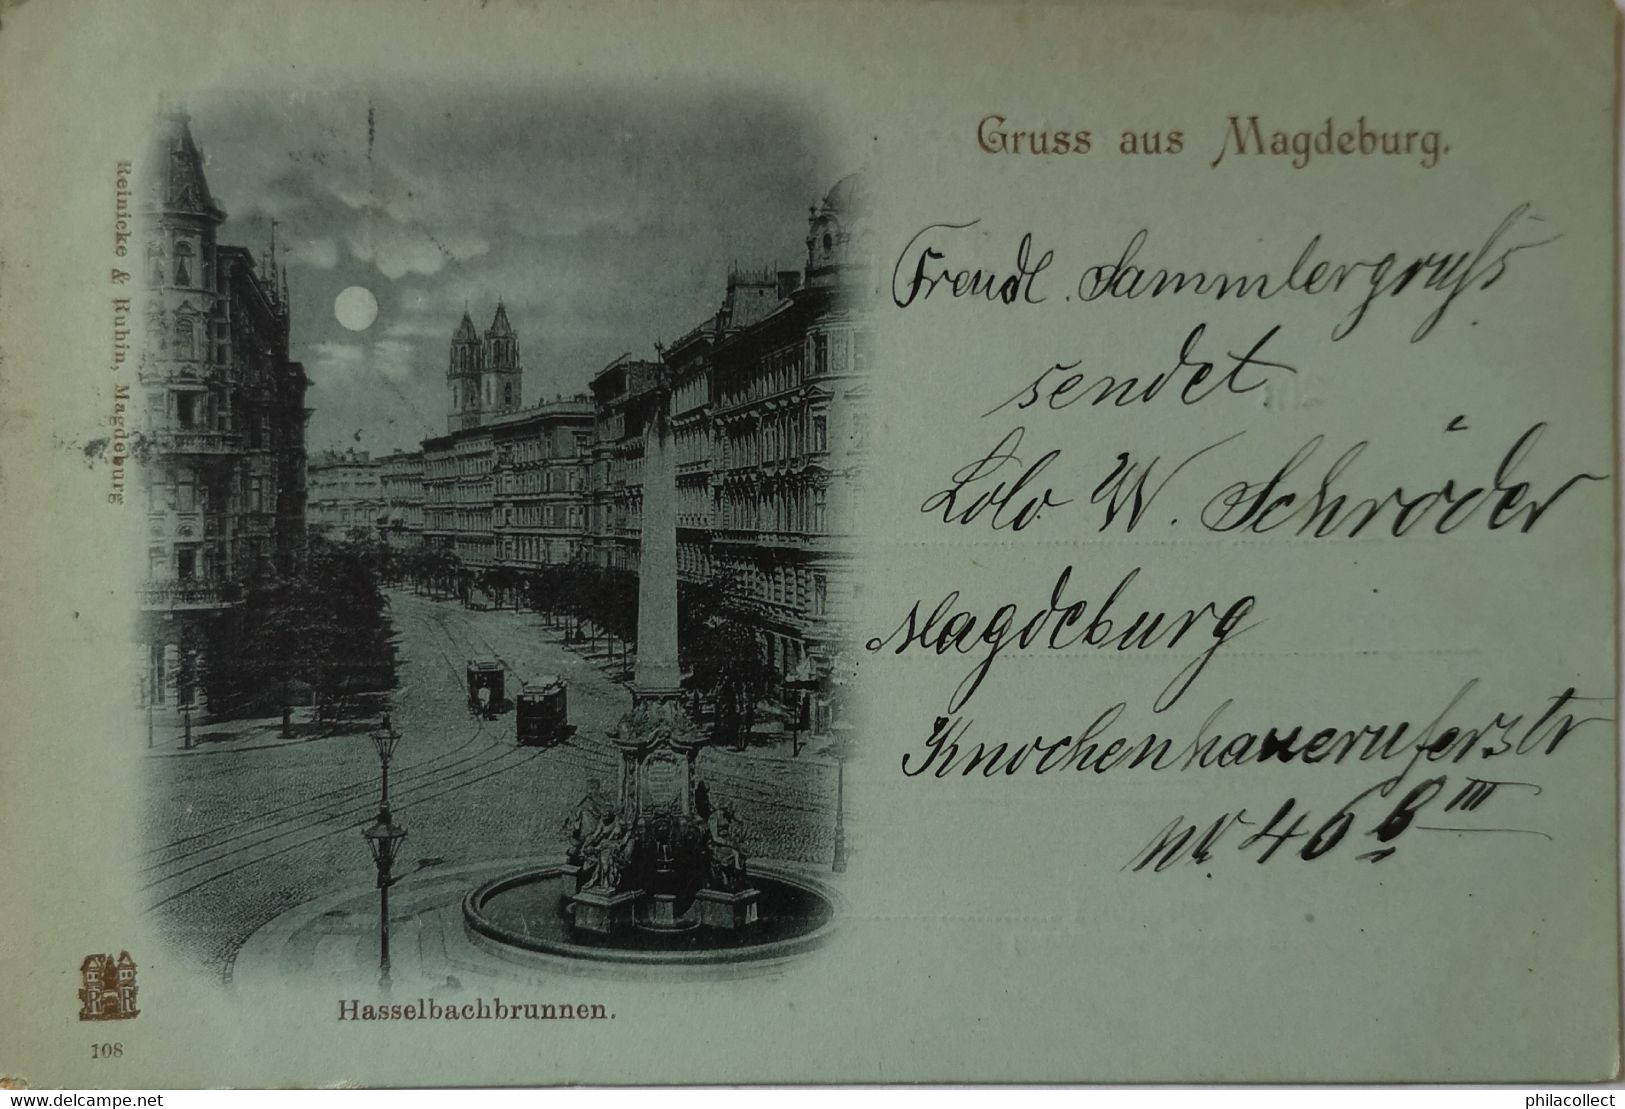 Gruss aus Magdeburg.
Freudl. Sammlergruß
sendet
Lolo W. Schröder
Magdeburg
Knochenhaueruferstr
Nr. 46 B III
Reinicke & Rubin, Magdeburg
R R
108
Hasselbachbrunnen.
delcampe.net
philacollect